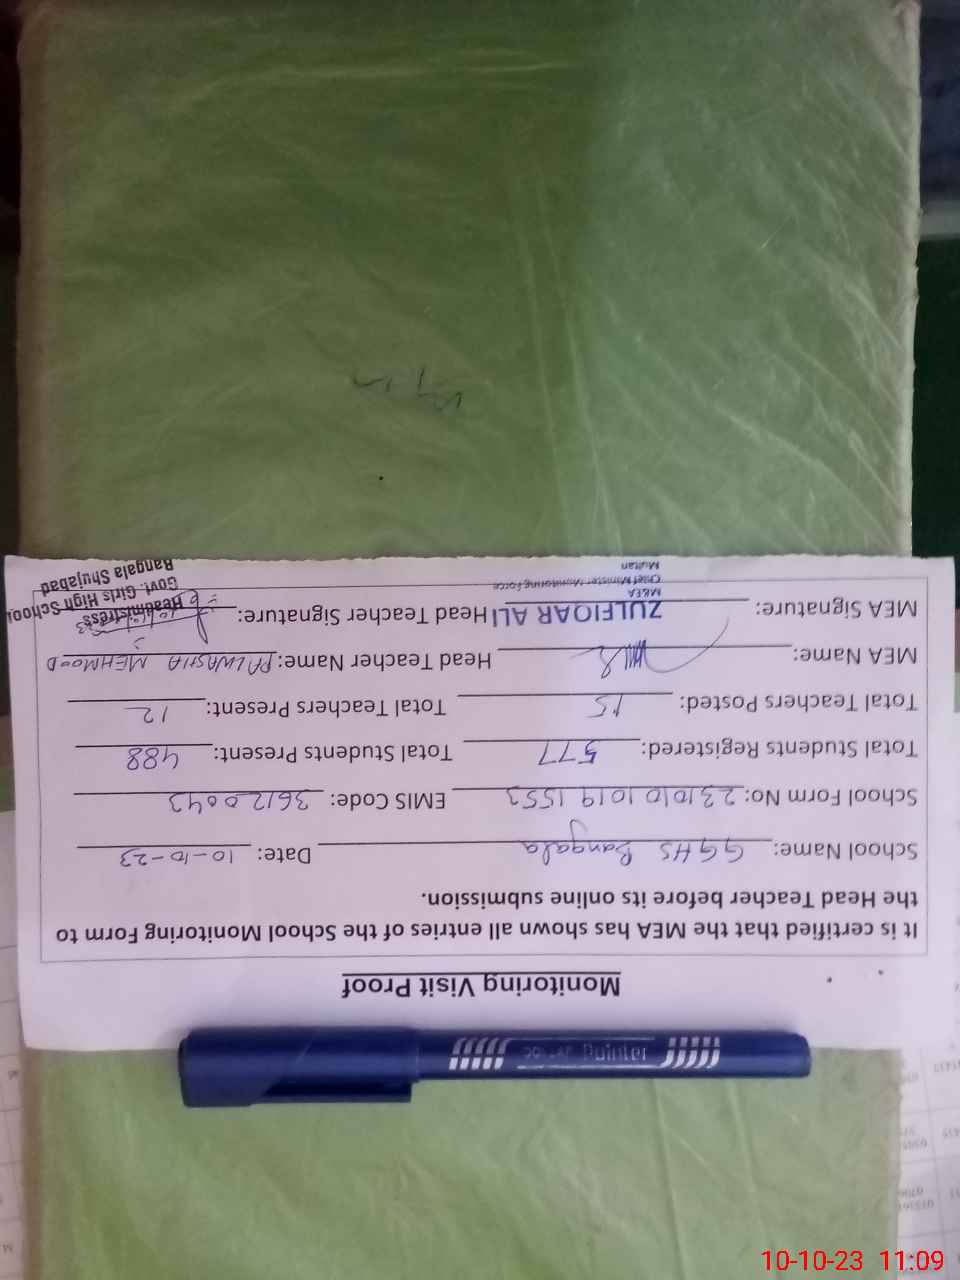 Monitoring Visit Proof
It is certified that the MEA has shown all entries of the School Monitoring Form to
the Head Teacher before its online submission.
School Name: GGHS Bangala Date: 10-10-23
School Form No: 2310101019 1553 EMIS Code: 36120043
Total Students Registered: 577 Total Students Present: 488
Total Teachers Posted: 15 Total Teachers Present: 12
MEA Name: Head Teacher Name: PALWASHA MEHMOOD
MEA Signature: ZULFIQAR ALI Head Teacher Signature:
M&EA
Chief Minister Monitoring Force
Multan
Headmistress
Govt. Girls High School
Bangala Shujabad
Pointer
10-10-23 11:09